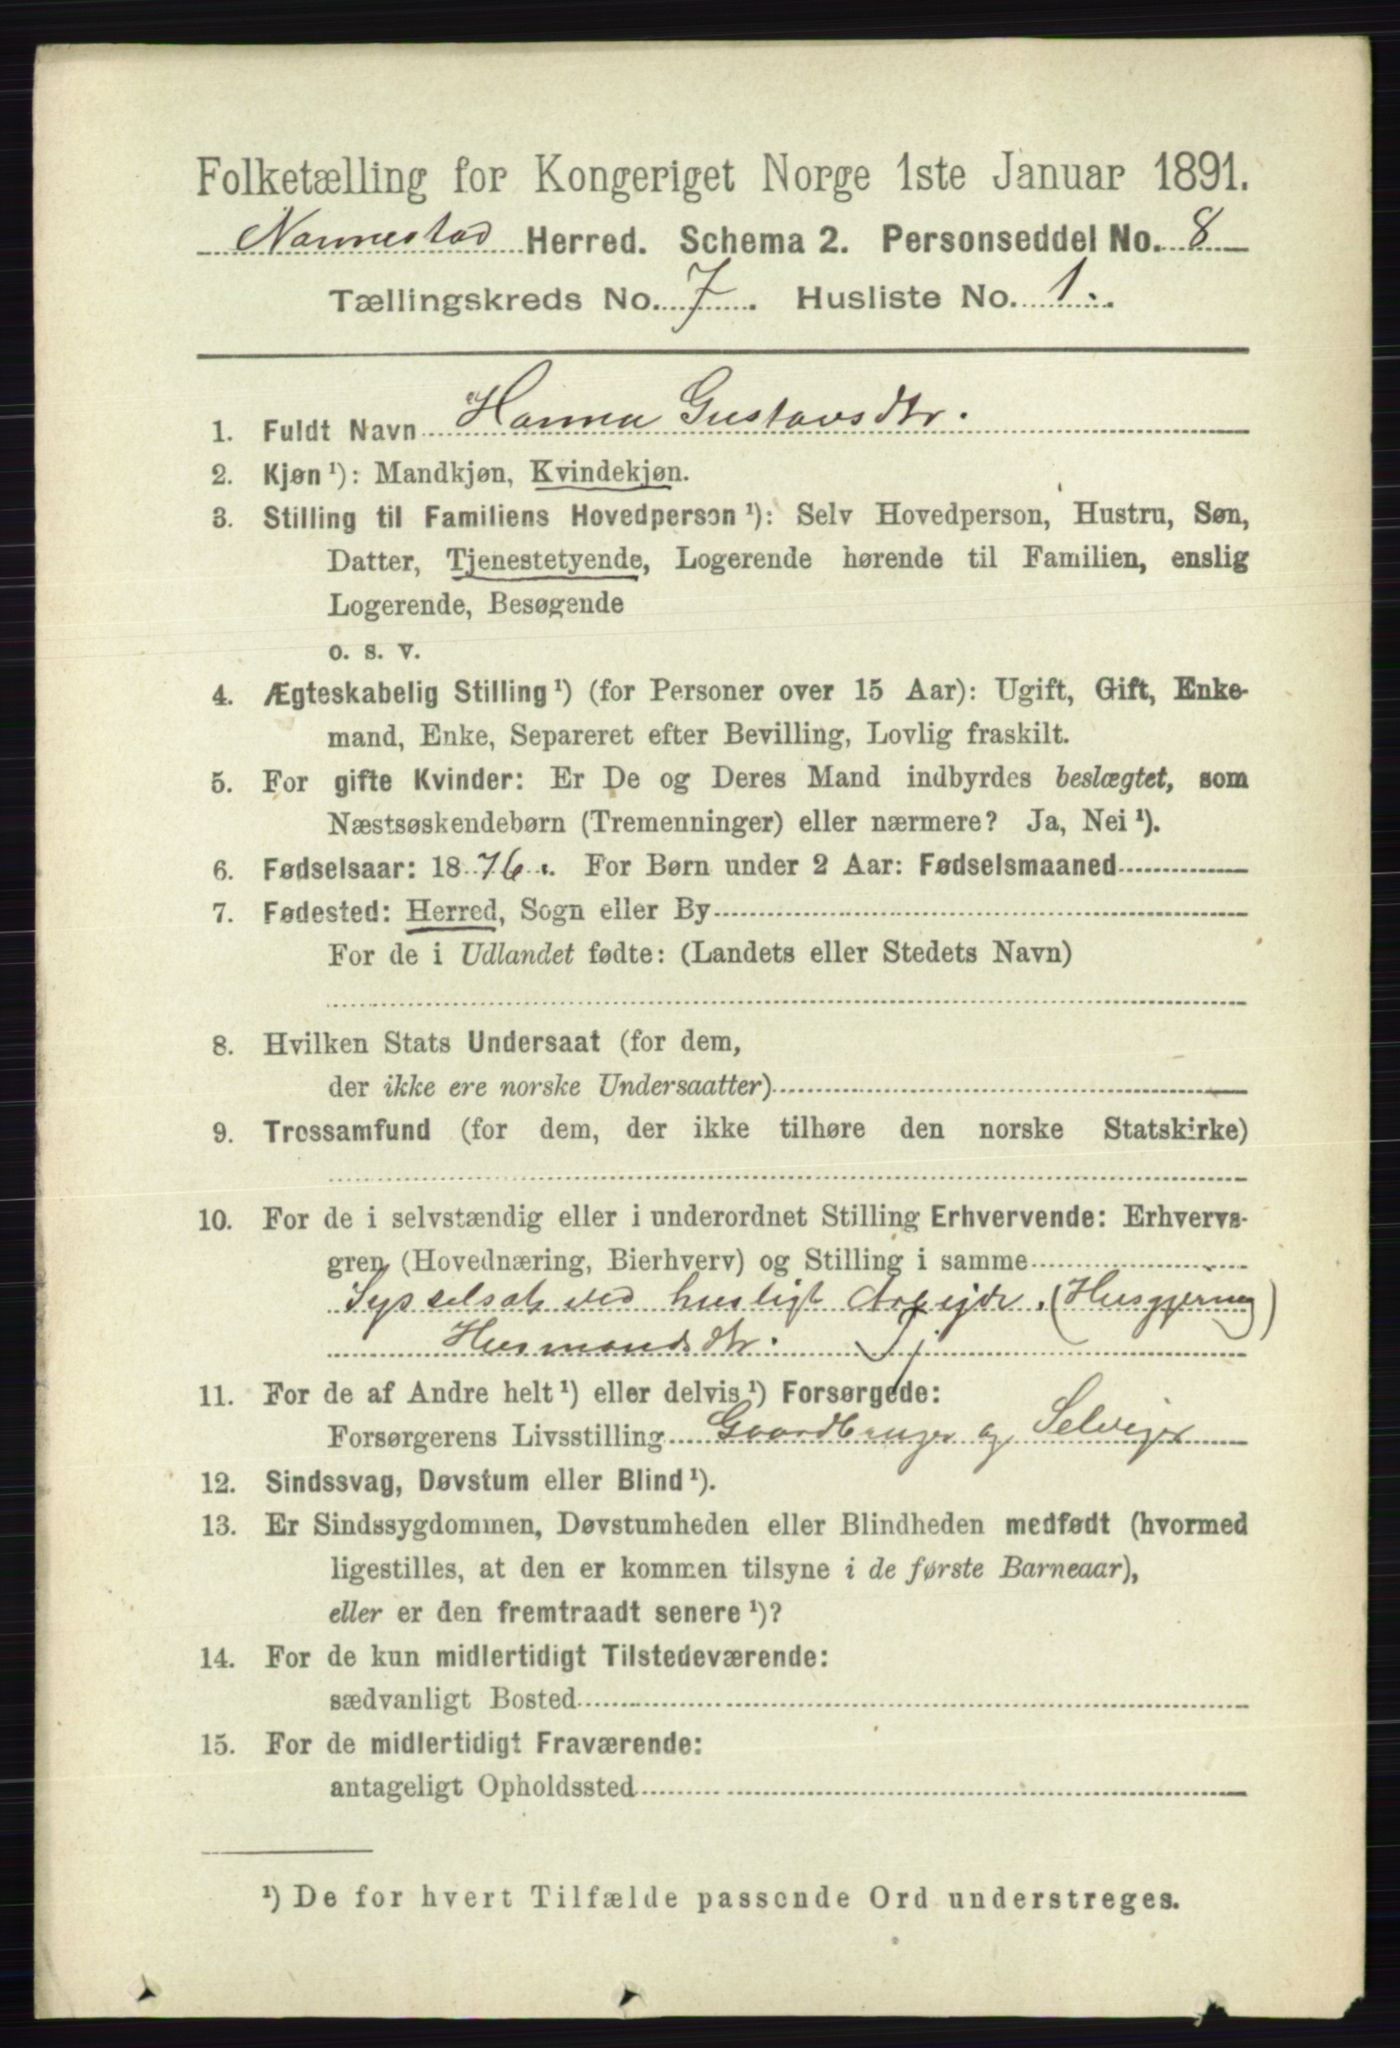 Folketælling for Kongeriget Norge 1ste Januar 1891.
Nannestad Herred. Schema 2. Personseddel No. 8
Tællingskreds No. 7. Husliste No. 1.
1. Fuldt Navn Hanna Gustavsdtr.
2. Kjøn ¹): Mandkjøn, Kvindekjøn.
3. Stilling til Familiens Hovedperson ¹): Selv Hovedperson, Hustru, Søn,
Datter, Tjenestetyende, Logerende hørende til Familien, enslig
Logerende, Besøgende
o. s. v.
4. Ægteskabelig Stilling ¹) (for Personer over 15 Aar): Ugift, Gift, Enke-
mand, Enke, Separeret efter Bevilling, Lovlig fraskilt.
5. For gifte Kvinder: Er De og Deres Mand indbyrdes beslægtet, som
Næstsøskendebørn (Tremenninger) eller nærmere? Ja, Nei ¹).
6. Fødselsaar: 1876. For Børn under 2 Aar: Fødselsmaaned
7. Fødested: Herred, Sogn eller By
For de i Udlandet fødte: (Landets eller Stedets Navn)
8. Hvilken Stats Undersaat (for dem,
der ikke ere norske Undersaatter)
9. Trossamfund (for dem, der ikke tilhøre den norske Statskirke)
10. For de i selvstændig eller i underordnet Stilling Erhvervende: Erhvervs-
gren (Hovednæring, Bierhverv) og Stilling i samme
Sysselsat ved husligt Arbejde. (Husgjerning)
Husmandsdtr. Tj
11. For de af Andre helt ¹) eller delvis ¹) Forsørgede:
Forsørgerens Livsstilling Gaardbruger og Selveier
12. Sindssvag, Døvstum eller Blind ¹).
13. Er Sindssygdommen, Døvstumheden eller Blindheden medfødt (hvormed
ligestilles, at den er kommen tilsyne i de første Barneaar),
eller er den fremtraadt senere ¹)?
14. For de kun midlertidigt Tilstedeværende:
sædvanligt Bosted
15. For de midlertidigt Fraværende:
antageligt Opholdssted
¹) De for hvert Tilfælde passende Ord understreges.